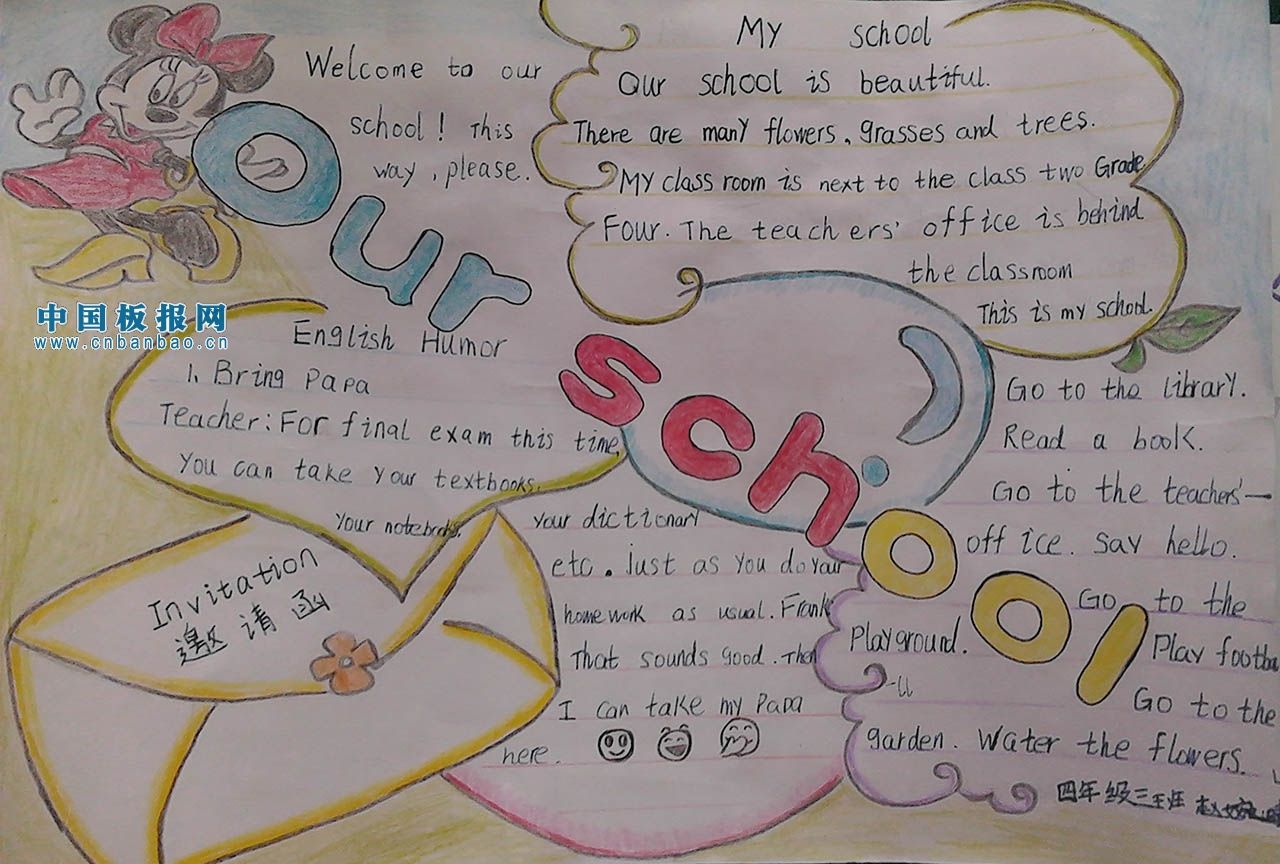 Welcome to our
school! This
way, please.
My school
Our school is beautiful.
There are many flowers, grasses and trees.
My class room is next to the class two Grade
Four. The teachers' office is behind
the classroom
This is my school.
Our school
中国板报网
www.cnbanbao.cn
English Humor
1. Bring Papa
Teacher: For final exam this time,
you can take your textbooks.
your notebooks.
your dictionary
etc. just as you do your
homework as usual. Frank
That sounds good. Then
I can take my Papa
here.
Invitation
邀请函
Go to the library.
Read a book.
Go to the teachers'—
office. Say hello.
Go to the
Playground. Play footba
-ll
Go to the
garden. Water the flowers.
四年级三班